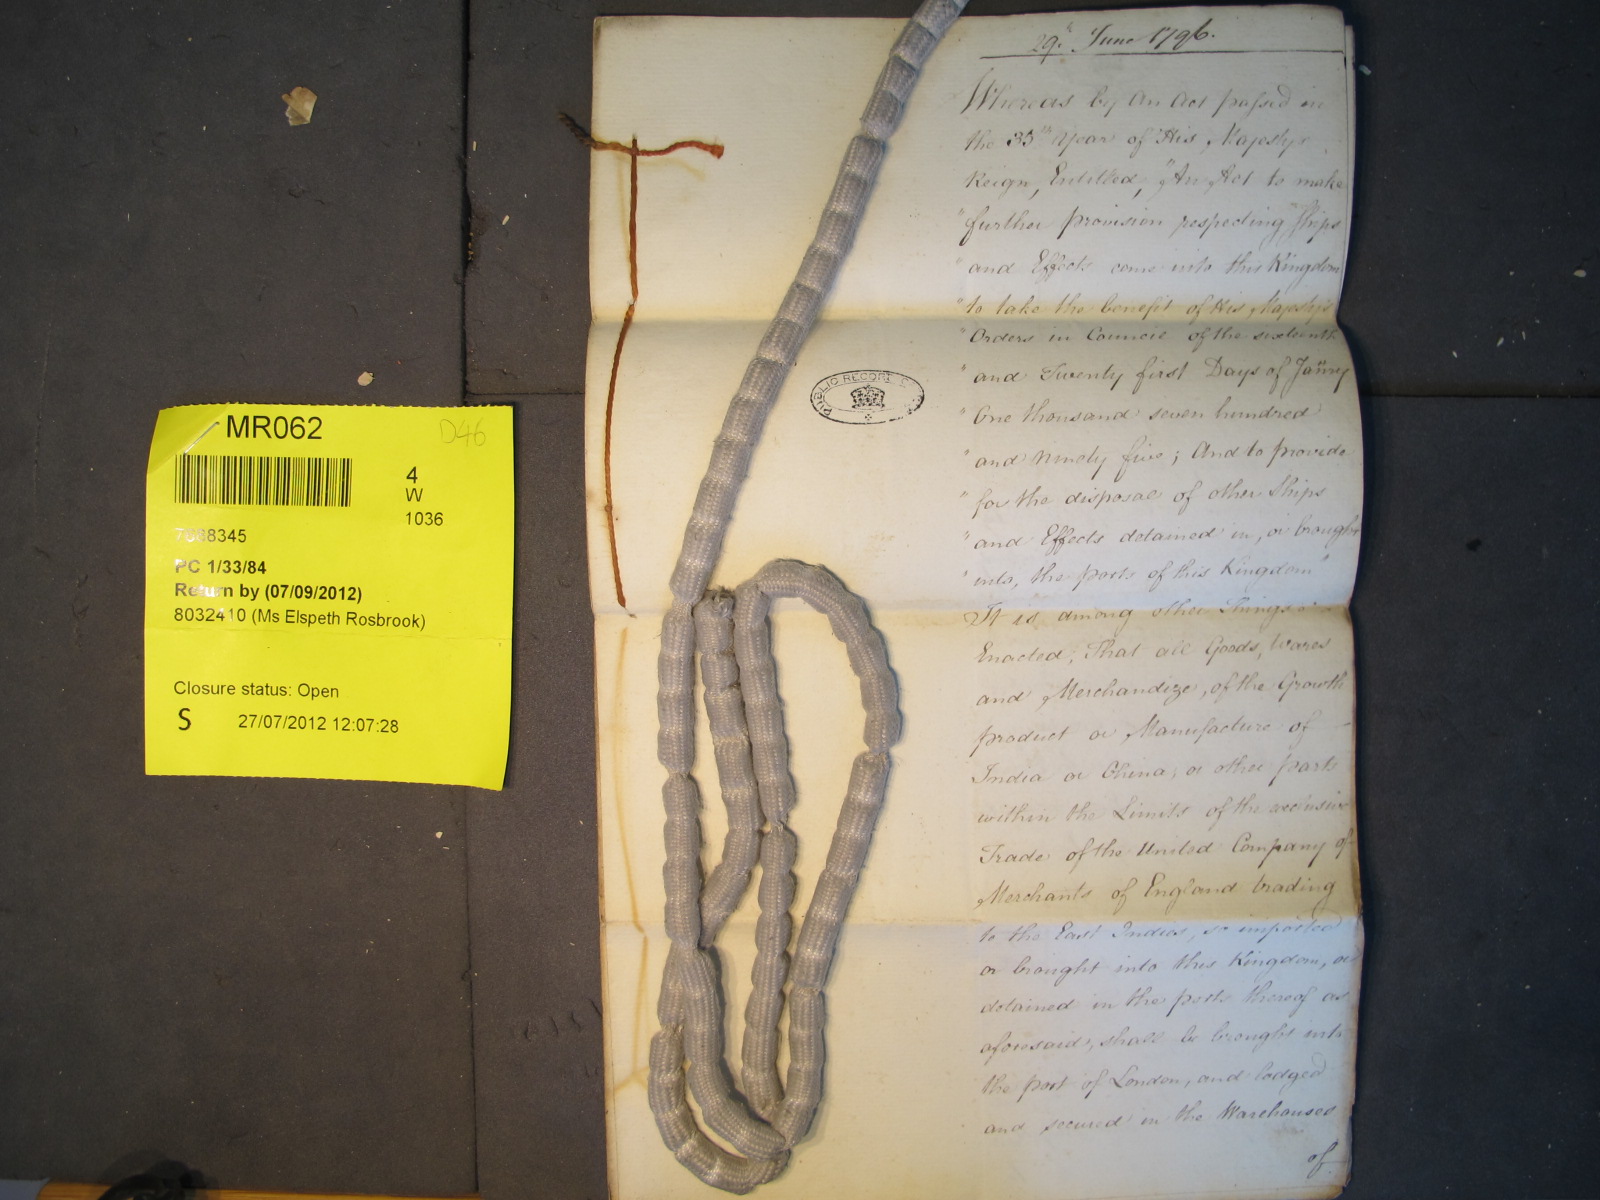 MR062
D46
4
W
1036
7668345
PC 1/33/84
Return by (07/09/2012)
8032410 (Ms Elspeth Rosbrook)
Closure status: Open
S 27/07/2012 12:07:28
PUBLIC RECORD O
29th June 1796.
Whereas by an Act passed in
the 35th Year of His Majestys
Reign, Entitled, "An Act to make
"further provision respecting Ships
"and Effects come into this Kingdom
"to take the benefit of His Majesty's
"Orders in Council of the sixteenth
"and Twenty first Days of Janry
"One thousand seven hundred
"and Ninety five; And to provide
"for the disposal of other Ships
"and Effects detained in, or brought
"into, the ports of this Kingdom"
It is among other Things
Enacted, That all Goods, Wares
and Merchandize, of the Growth
product or Manufacture of
India or China, or other parts
within the Limits of the exclusive
Trade of the United Company of
Merchants of England trading
to the East Indies, so imported
or brought into this Kingdom, or
detained in the ports thereof as
aforesaid, shall be brought into
the port of London, and lodged
and secured in the Warehouses
of